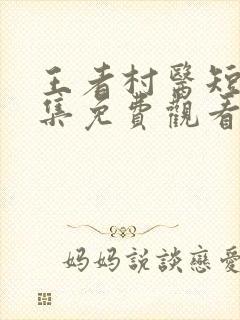 王者村醫短
集免費觀看
妈妈説談戀愛